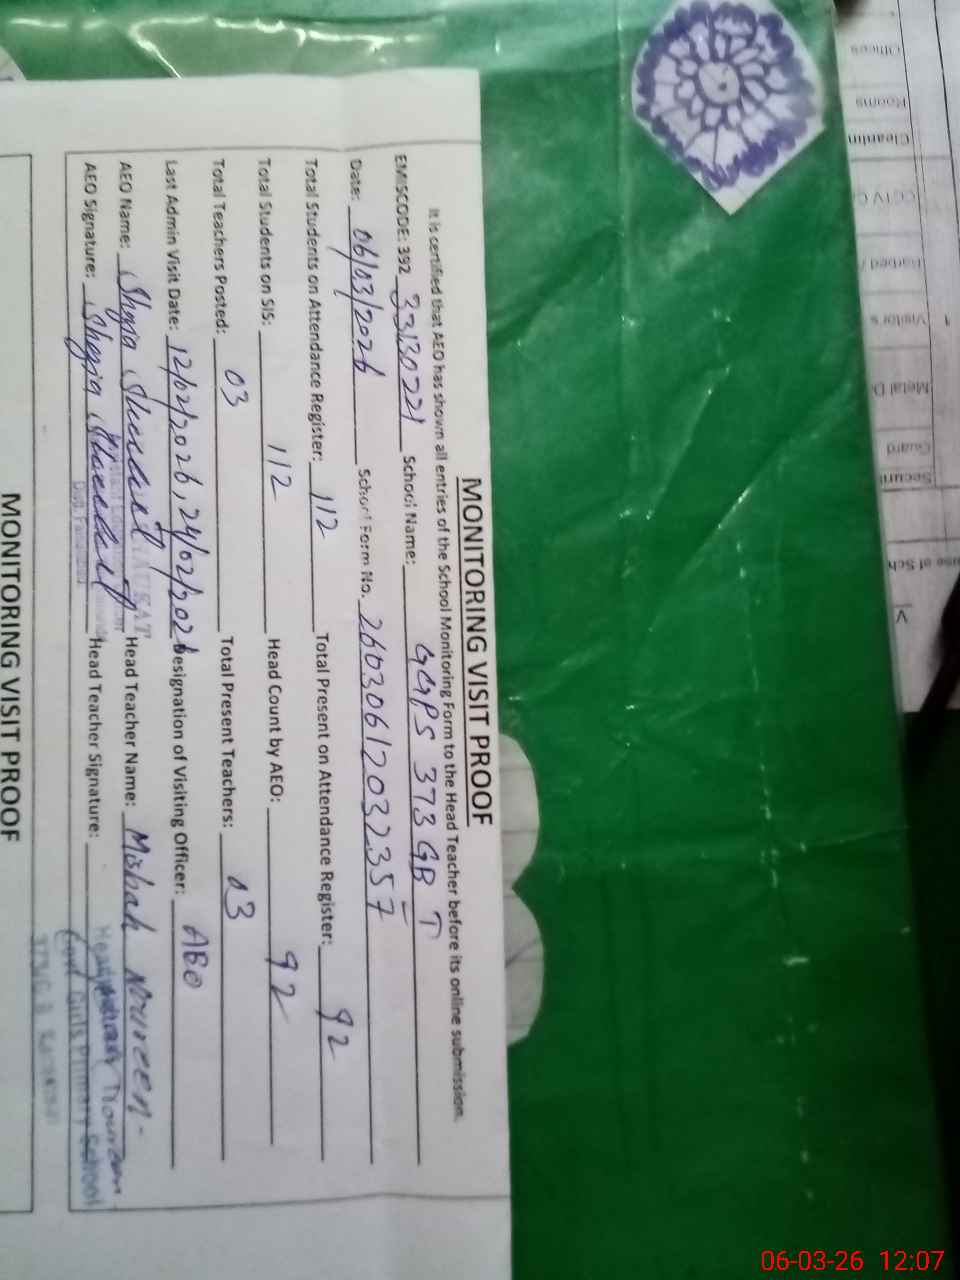 MONITORING VISIT PROOF
It is certified that AEO has shown all entries of the School Monitoring Form to the Head Teacher before its online submission.
EMISCODE: 392 33130221 School Name: GGPS 373 GB T
Date: 06/03/2026 School Form No. 260306120323 57
Total Students on Attendance Register: 112 Total Present on Attendance Register: 92
Total Students on SIS: 112 Head Count by AEO: 92
Total Teachers Posted: 03 Total Present Teachers: 03
Last Admin Visit Date: 12/02/2026, 24/02/2026 Designation of Visiting Officer: AEO
AEO Name: Shazia Shaukat Head Teacher Name: Misbah Noureen
AEO Signature: Shazia Shaukat Head Teacher Signature:
Govt Girls Primary School
MONITORING VISIT PROOF
Offices
Rooms
Visitor's
Metal D
Guard
06-03-26 12:07